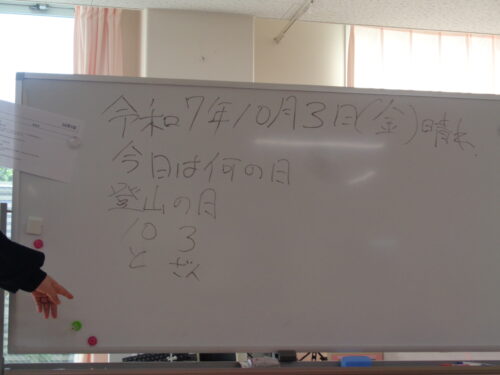 令和7年10月3日(金)晴れ
今日は何の日
登山の日
10 3
と ざん